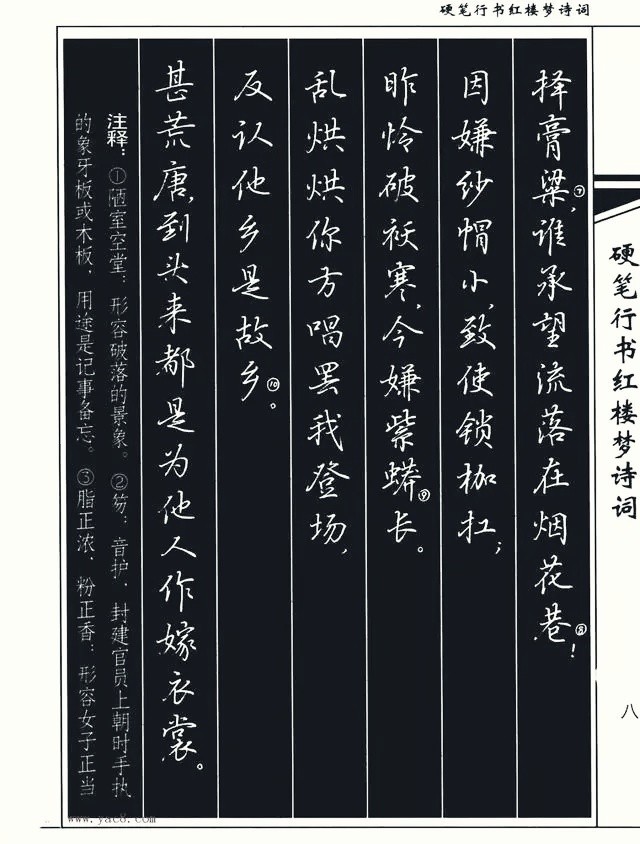 硬笔行书红楼梦诗词
择膏粱⑦,谁承望流落在烟花巷⑧!
因嫌纱帽小,致使锁枷扛;
昨怜破袄寒,今嫌紫蟒⑨长。
乱烘烘你方唱罢我登场,
反认他乡是故乡⑩。
甚荒唐,到头来都是为他人作嫁衣裳。
注释:①陋室空堂:形容破落的景象。②笏:音护,封建官员上朝时手执
的象牙板或木板,用途是记事备忘。③脂正浓、粉正香:形容女子正当
硬笔行书红楼梦诗词
八
www.yac8.com